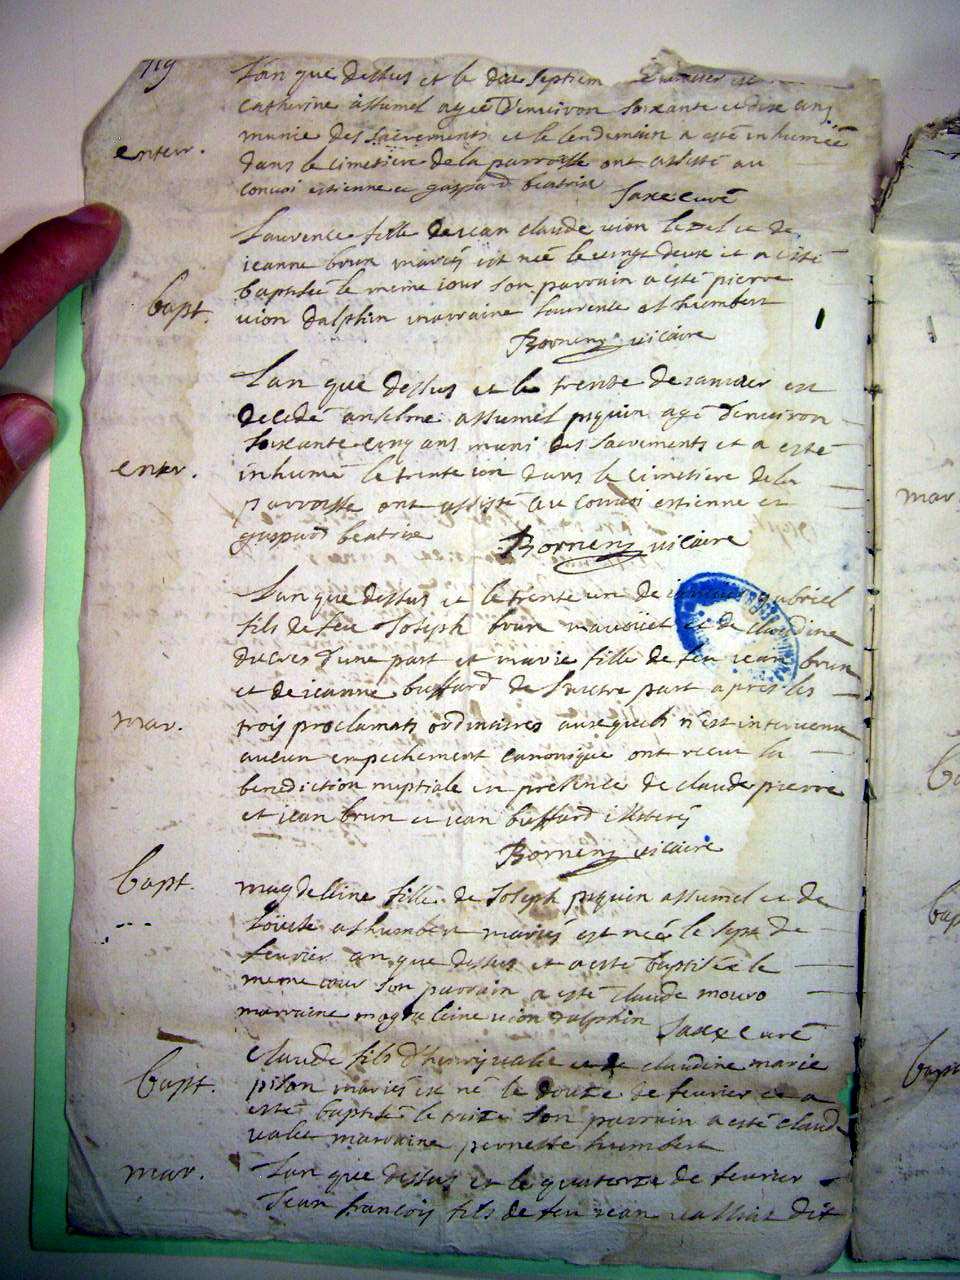 719
L'an que dessus et le
Catherine assumel agée d'environ soixante et dix ans
enterr.
munie des sacrements et le lendemain a esté inhumée
dans le cimetiere de la parroisse ont assisté au
convoi estienne et gaspard beatrise
Saxe curé
Laurence fille de jean claude vion et de
jeanne brun mariés est née le vingt deux et a esté
bapt.
baptisée le meme jour son parrain a esté pierre
vion dalphin marraine laurence humbert
Bornen vicaire
L'an que dessus et le trente de janvier est
decedé anselme assumel piquin agé d'environ
soixante cinq ans muni des sacrements et a esté
enter.
inhumé le trente un dans le cimetiere de la
parroisse ont assisté au convoi estienne et
gaspard beatrise
Bornen vicaire
L'an que dessus et le trente un de gabriel
fils de feu Joseph brun et de claudine
d'une part et marie fille de feu jean brun
et de jeanne buffard de l'autre part apres les
mar.
trois proclamats ordinaires auxquels n'est intervenu
aucun empechement canonique ont receu la
benediction nuptiale en presence de claude pierre
et jean brun et jean buffard illiterés
Bornen vicaire
bapt.
magdeleine fille de Joseph piquin assumel et de
humbert mariés est née le sept de
fevrier an que dessus et a esté baptisée le
meme jour son parrain a esté claude
marraine magdeleine vion dalphin
Saxe curé
Claude fils d'henri et de claudine marie
bapt.
pilon mariés est né le douze de fevrier et a
esté baptisé le treize son parrain a esté claude
marraine pernette humbert
mar.
L'an que dessus et le quatorze de fevrier
Jean françois fils de feu jean dit